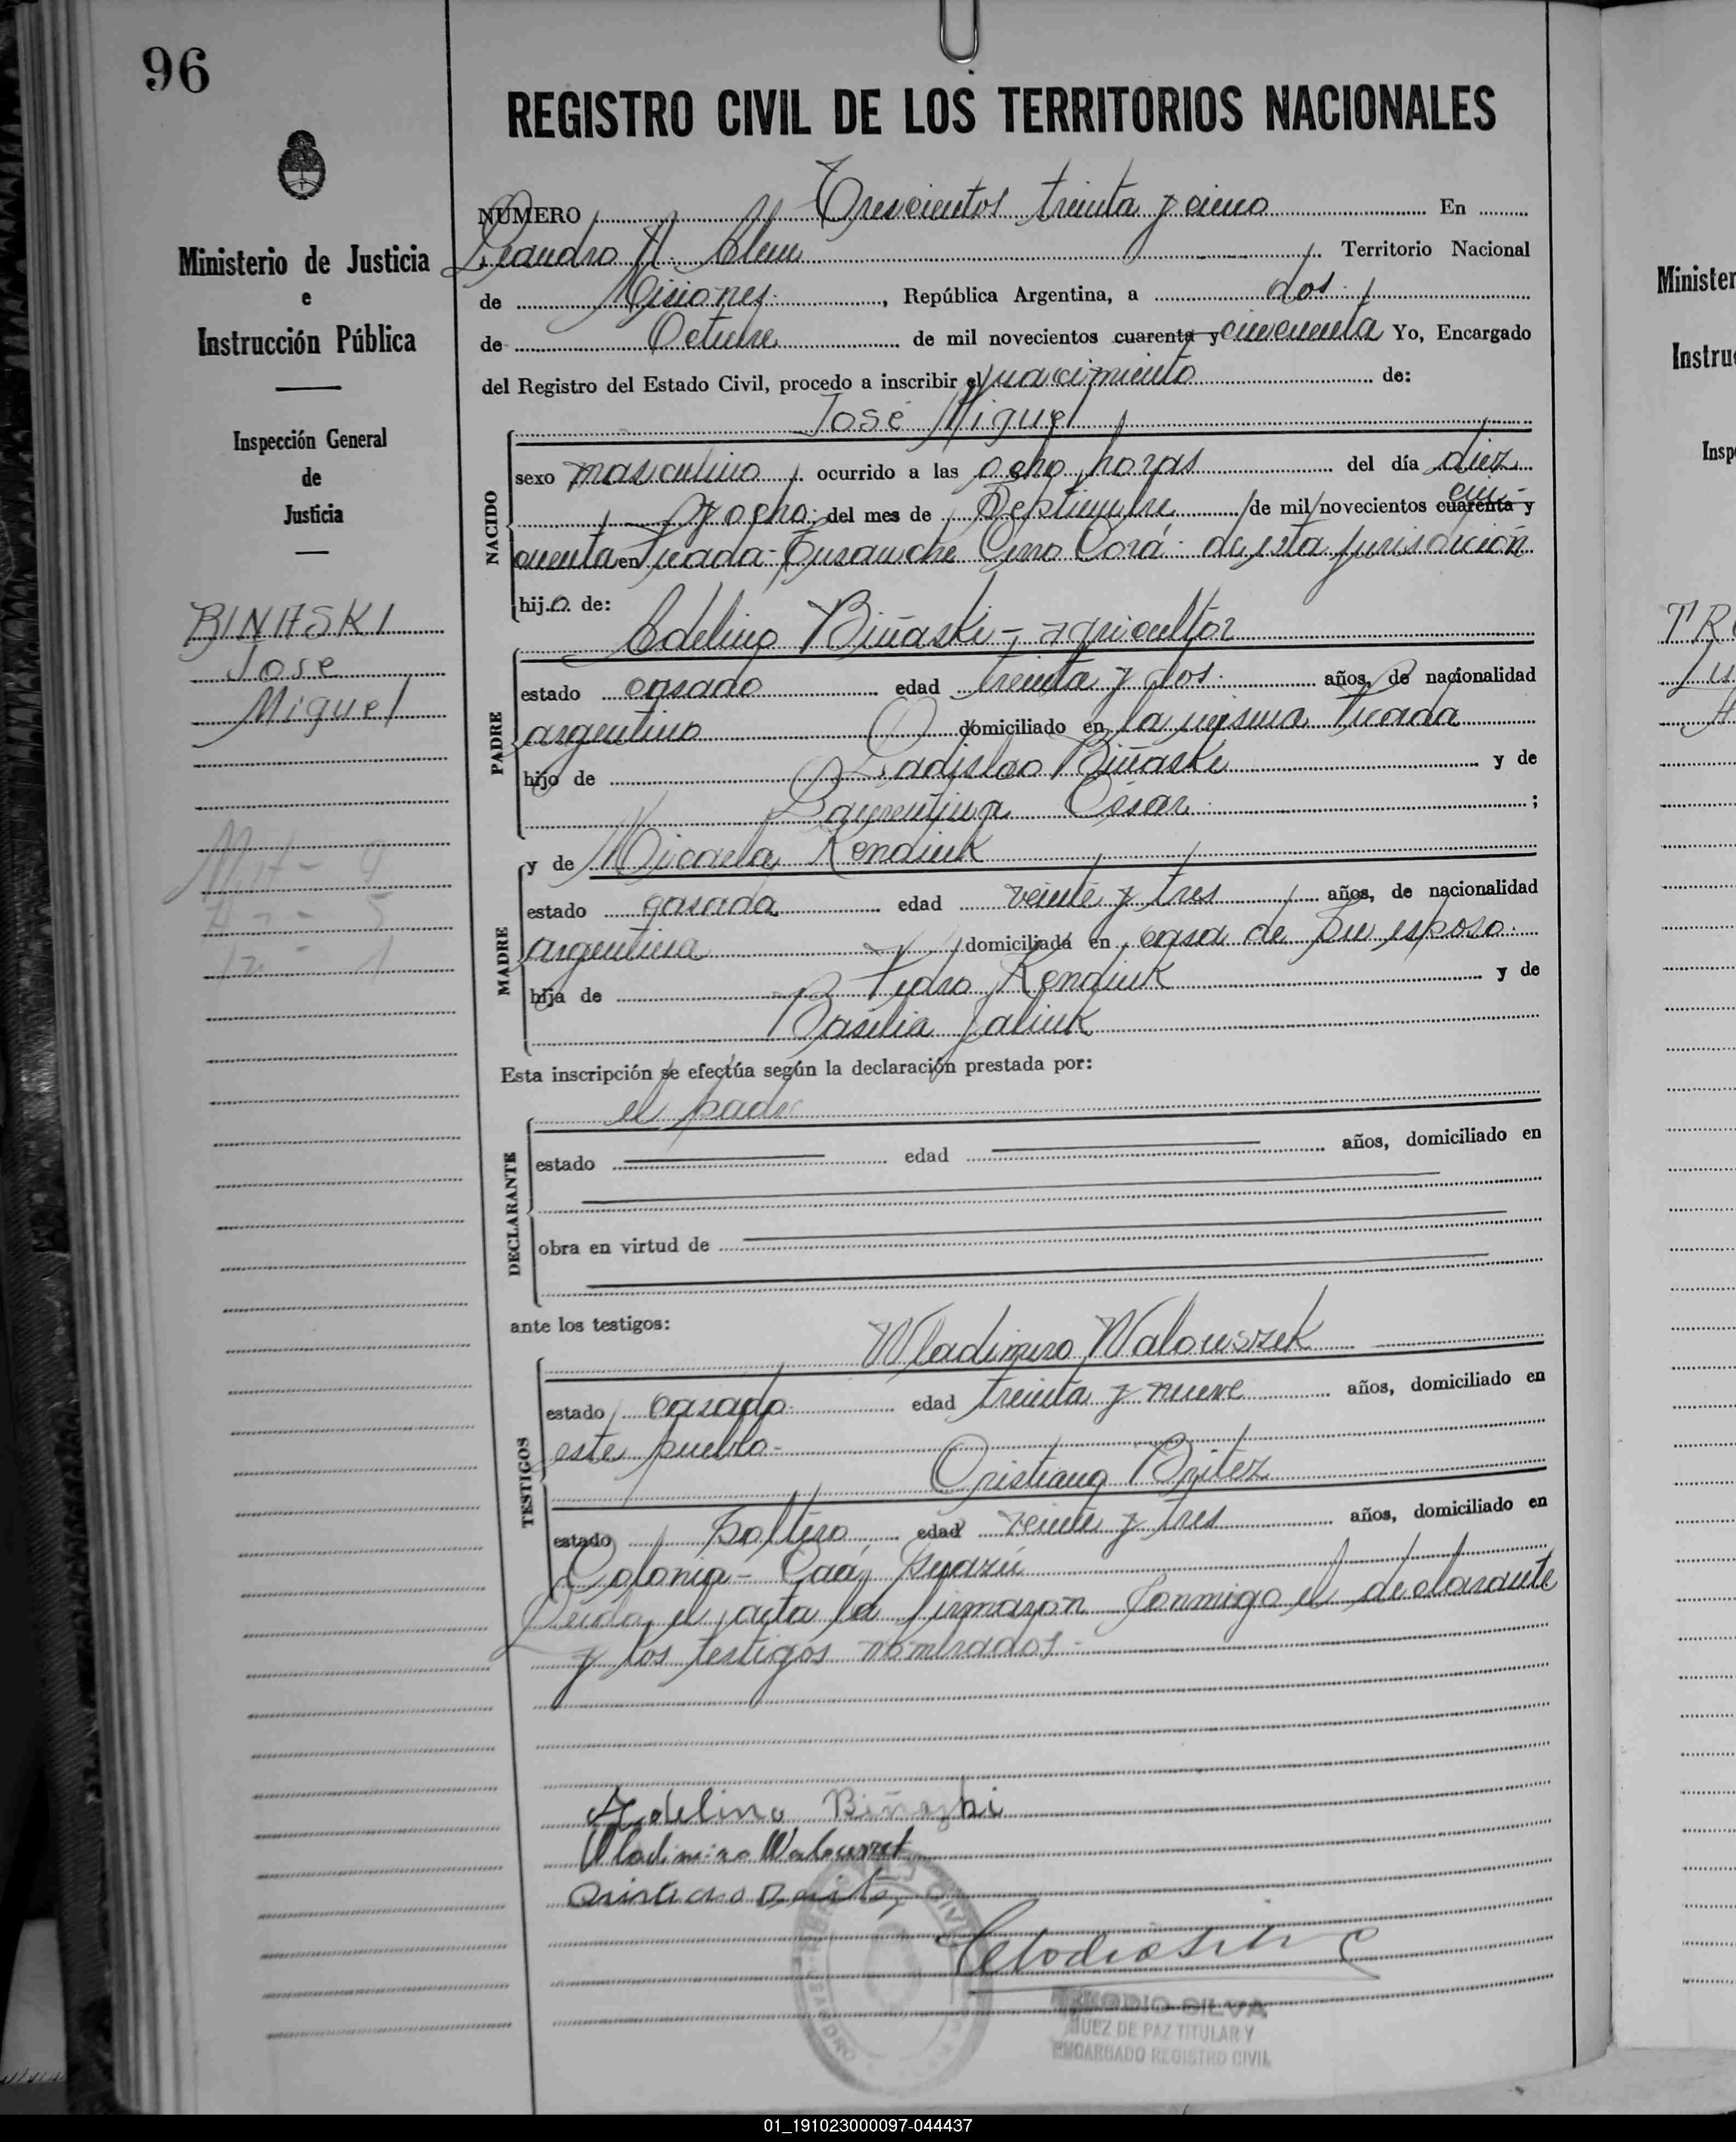 96
REGISTRO CIVIL DE LOS TERRITORIOS NACIONALES
Ministerio de Justicia
e
Instrucción Pública
Inspección General
de
Justicia
BINASKI
Jose
Miguel
NUMERO Trescientos treinta y cinco En
Leandro N. Alem Territorio Nacional
de Misiones, República Argentina, a dos
de Octubre de mil novecientos cuarenta y cincuenta Yo, Encargado
del Registro del Estado Civil, procedo a inscribir el nacimiento de:
José Miguel
NACIDO
sexo masculino ocurrido a las ocho horas del día diez
y ocho del mes de Septiembre de mil novecientos cuarenta y cin-
cuenta en Picada Cerro Corá de esta jurisdicción
hijo de:
Adelino Biñaski - agricultor
PADRE
estado casado edad treinta y dos años, de nacionalidad
argentino domiciliado en la misma Picada
hijo de Ladislao Biñaski y de
Laurentina Césan ;
y de Micaela Rendiuk
MADRE
estado casada edad veinte y tres años, de nacionalidad
argentina domiciliada en casa de su esposo.
hija de Pedro Rendiuk y de
Basilia Jaliuk
Esta inscripción se efectúa según la declaración prestada por:
el padre
DECLARANTE
estado edad años, domiciliado en
obra en virtud de
ante los testigos:
Wladimiro Walouszek
TESTIGOS
estado casado edad treinta y nueve años, domiciliado en
este pueblo-
Cristiano Britez
estado soltero edad veinte y tres años, domiciliado en
Colonia - Caá Guazú
Leida el acta la firmaron conmigo el declarante
y los testigos nombrados-
Adelino Biñaski
Wladimiro Walouszek
Clodio Silva
CLODIO SILVA
JUEZ DE PAZ TITULAR Y
ENCARGADO REGISTRO CIVIL
01_191023000097-044437